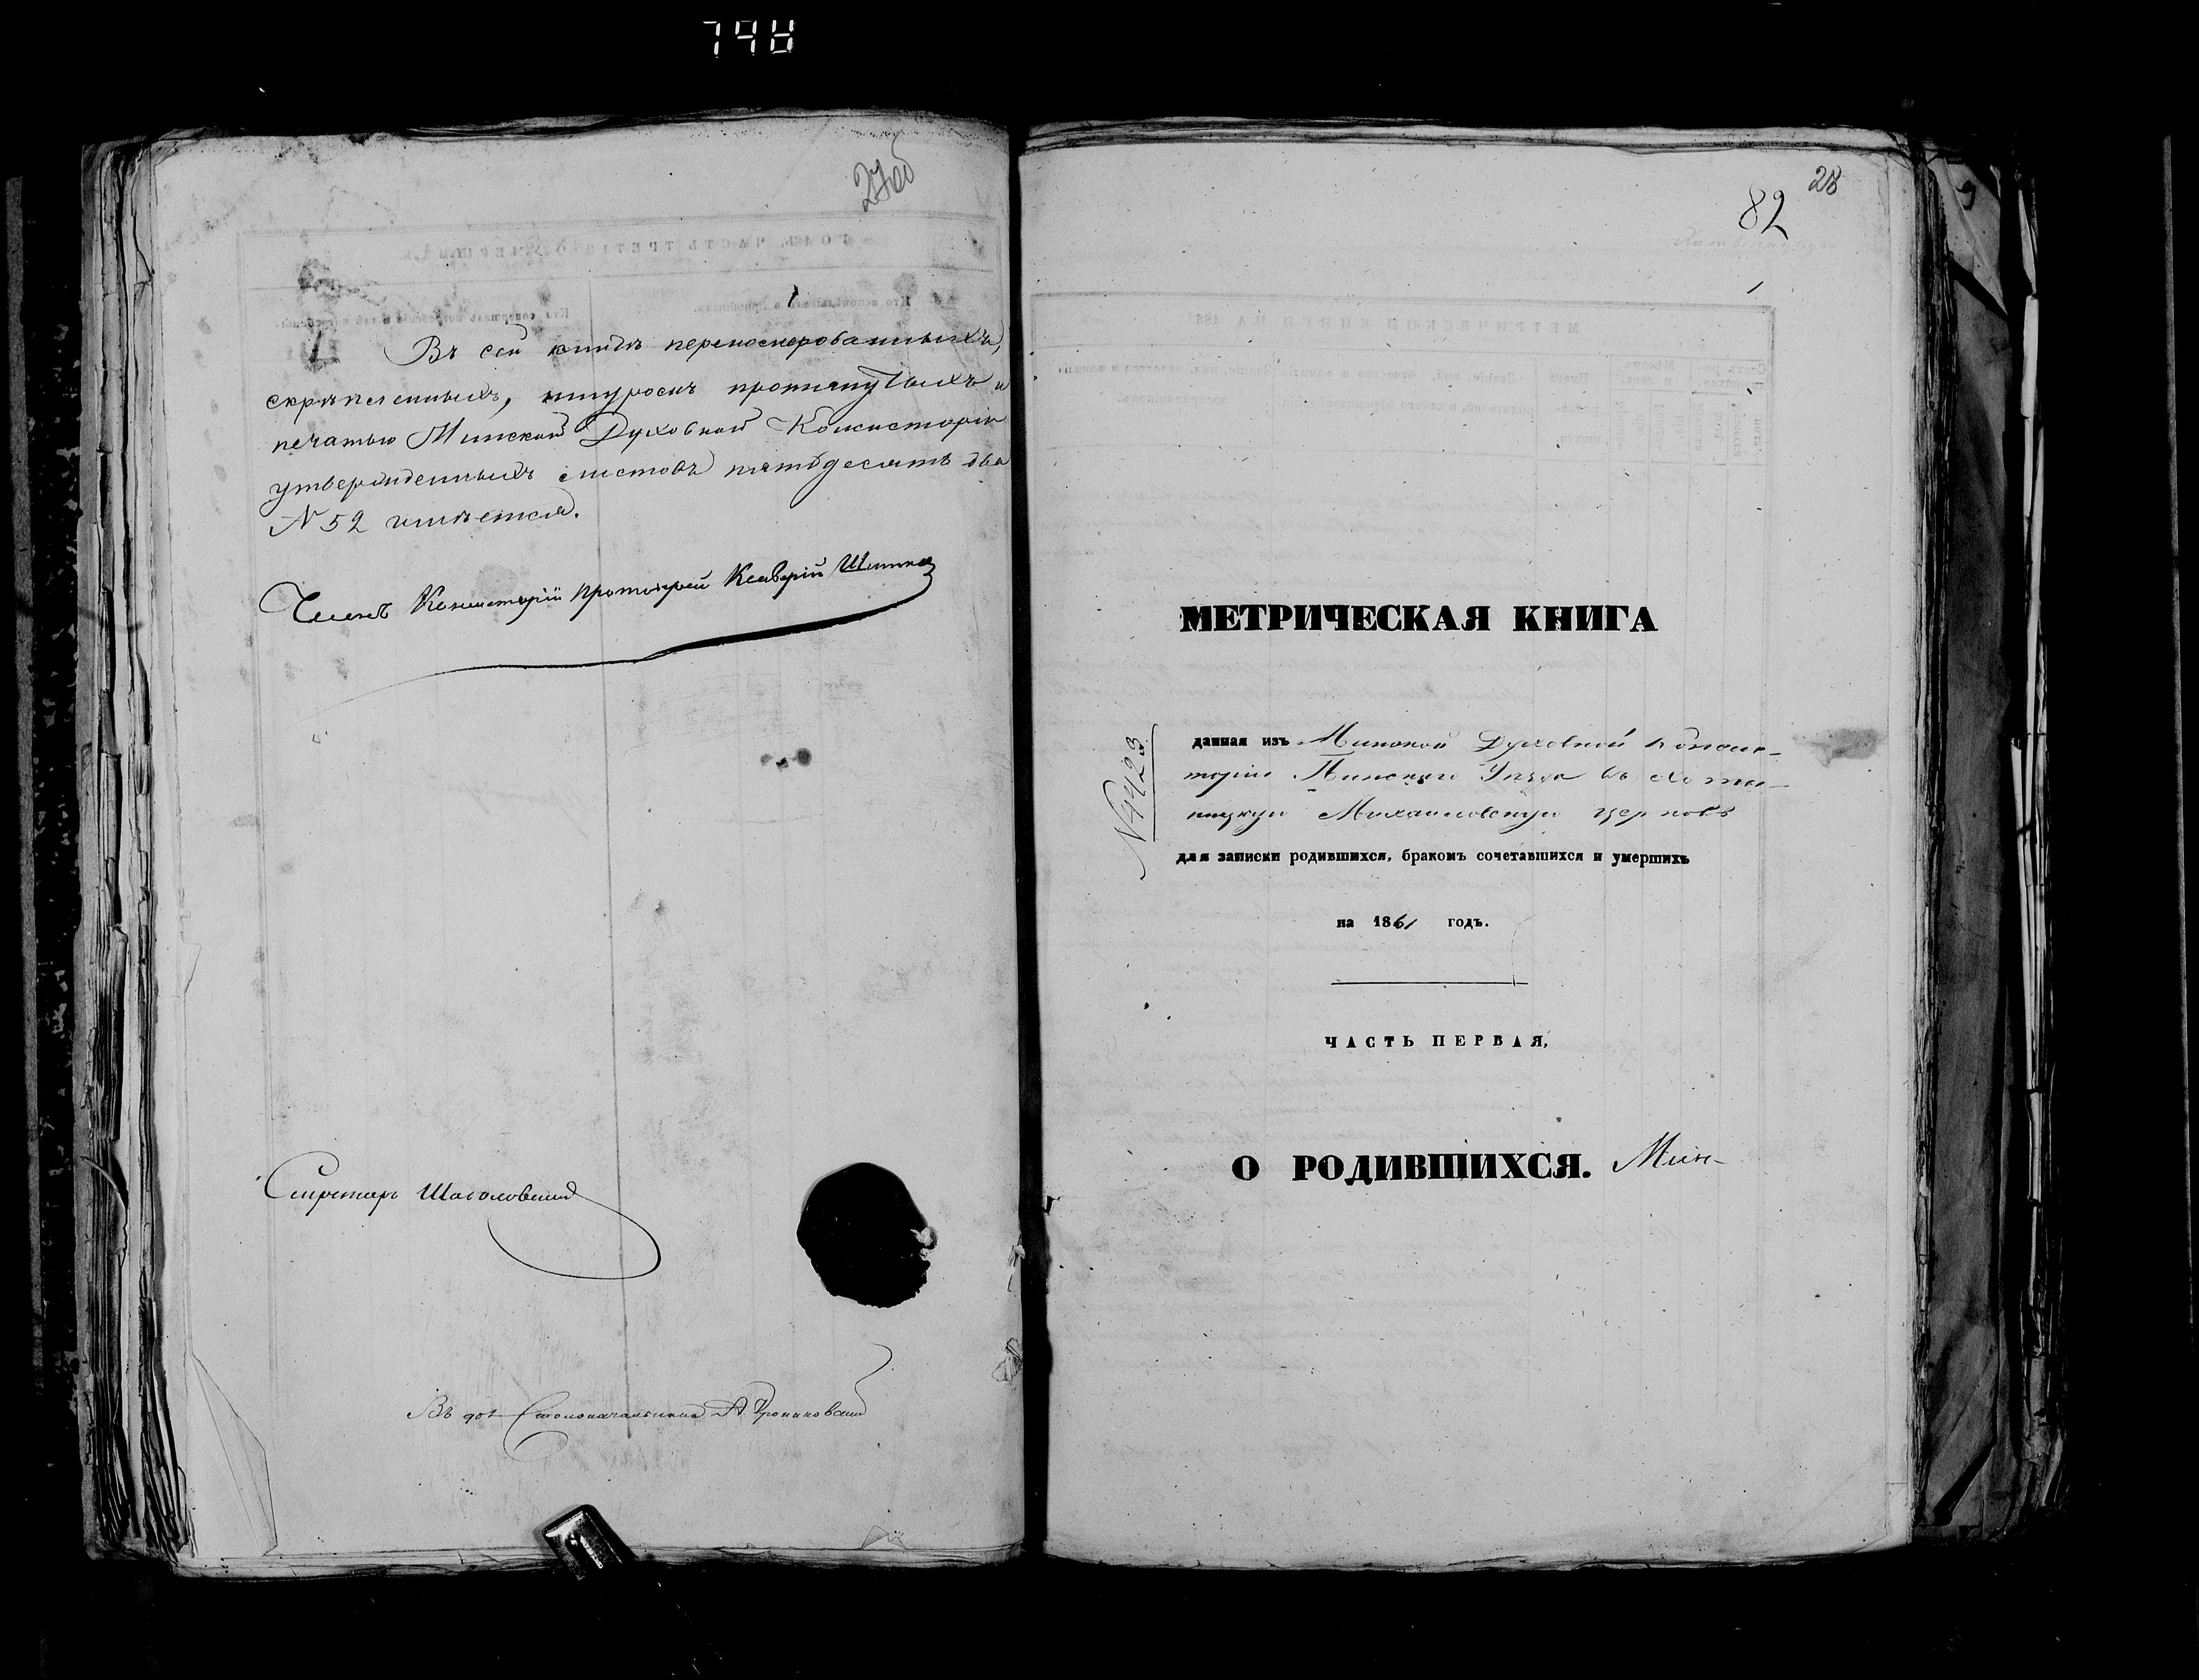 794
27об
Въ сей книгѣ перенумерованныхъ,
скрѣпленныхъ, шнуромъ протянутыхъ и
печатью Минской Духовной Консисторіи
утвержденныхъ листовъ пятьдесятъ два
N 52 имѣется.
Членъ Консисторіи Протоіерей Ксаверій
Секретарь
Въ дол. Столоначальника А.
28
82
1
МЕТРИЧЕСКАЯ КНИГА
N 4423
данная изъ Минской Духовной Консис-
торіи Пинскаго Уѣзда въ Хоты-
ницкую Михайловскую церковь
для записки родившихся, бракомъ сочетавшихся и умершихъ
на 1861 годъ.
ЧАСТЬ ПЕРВАЯ,
О РОДИВШИХСЯ. Мин-